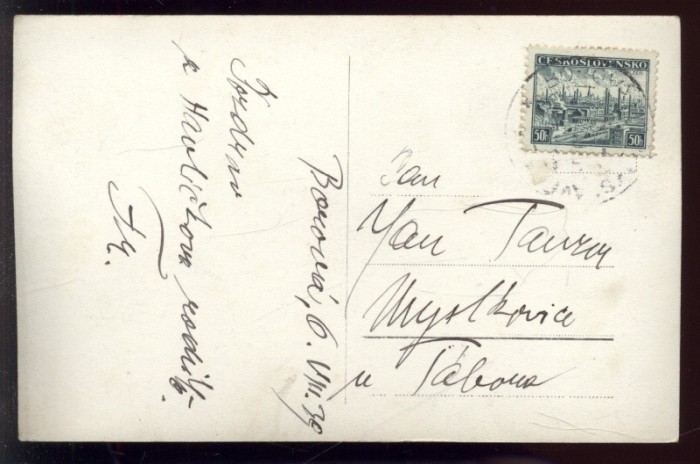 ČESKOSLOVENSKO
50h 50h
Borová, 6. VIII. 39
z Havlíčkova rodiště
Pan
Jan
Myslkovice
u Tábora